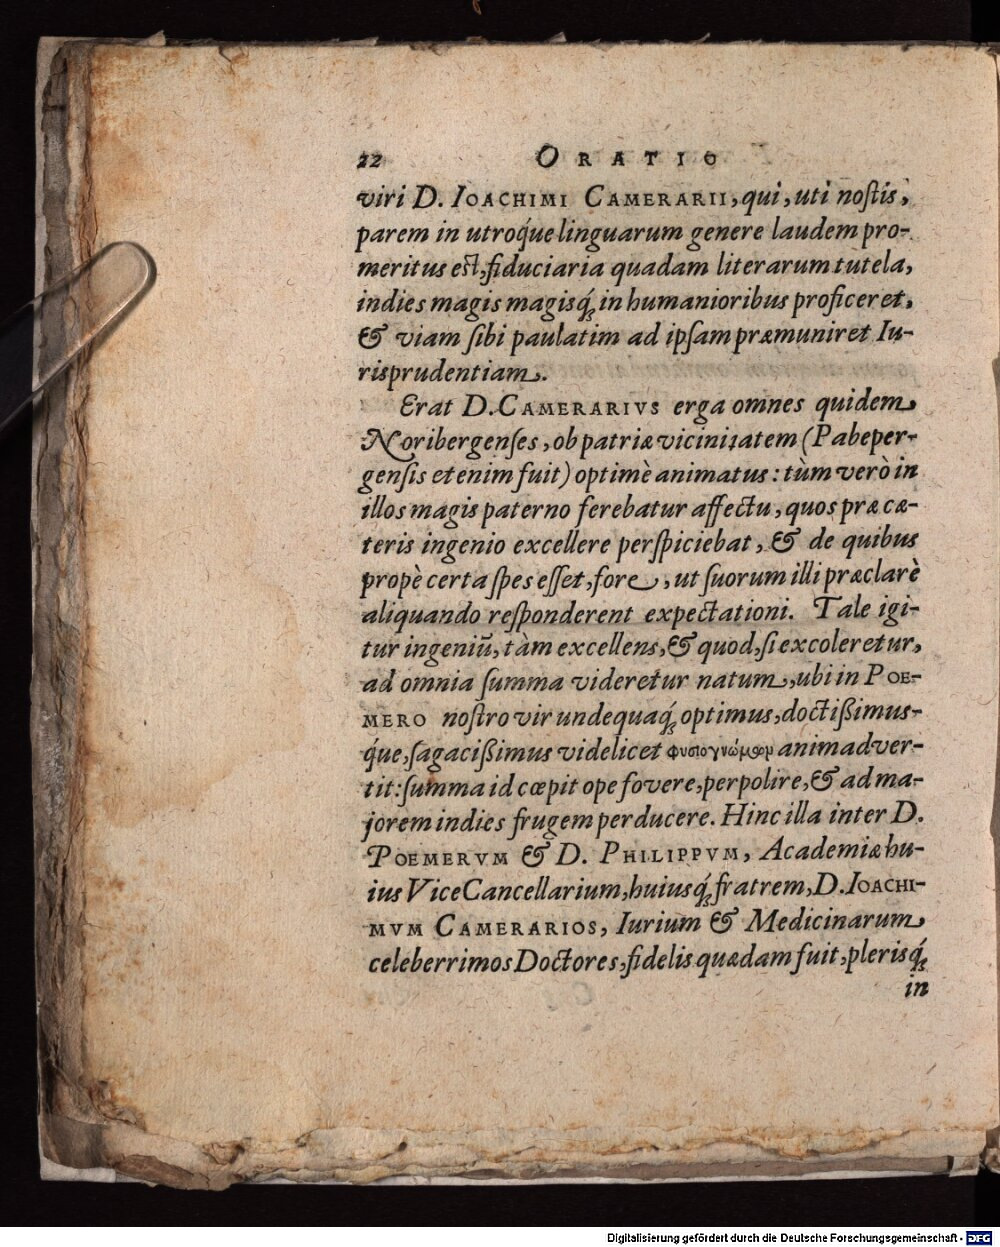 22 ORATIO
viri D. IOACHIMI CAMERARII, qui, uti noſtis,
parem in utroq́ue linguarum genere laudem pro-
meritus est, fiduciaria quadam literarum tutela,
indies magis magisq́; in humanioribus proficeret,
& viam ſibi paulatim ad ipſam præmuniret Iu-
risprudentiam.
Erat D. CAMERARIVS erga omnes quidem
Noribergenſes, ob patriæ vicinitatem (Pabeper-
genſis etenim fuit) optimè animatus: tùm verò in
illos magis paterno ferebatur affectu, quos præ cæ-
teris ingenio excellere perſpiciebat, & de quibus
propè certa ſpes eſſet, fore, ut ſuorum illi præclarè
aliquando reſponderent expectationi. Tale igi-
tur ingeniū, tàm excellens, & quod, ſi excoleretur,
ad omnia ſumma videretur natum, ubi in POE-
MERO noſtro vir undequaq́; optimus, doctißimus-
q́ue, ſagacißimus videlicet φυσιογνώμων animadver-
tit: ſumma id cœpit ope fovere, perpolire, & ad ma-
jorem indies frugem perducere. Hinc illa inter D.
POEMERVM & D. PHILIPPVM, Academiæ hu-
ius ViceCancellarium, huiusq́; fratrem, D. IOACHI-
MVM CAMERARIOS, Iurium & Medicinarum
celeberrimos Doctores, fidelis quædam fuit, plerisq́;
in
Digitalisierung gefördert durch die Deutsche Forschungsgemeinschaft - DFG